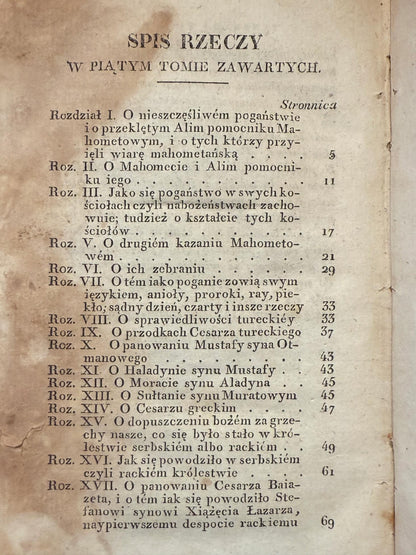 SPIS RZECZY
W PIĄTYM TOMIE ZAWARTYCH.
Stronnica
Rozdział I. O nieszczęśliwém pogaństwie
i o przeklętym Alim pomocniku Ma-
hometowym, i o tych którzy przy-
ięli wiarę mahometańską . . . . 5
Roz. II. O Mahomecie i Alim pomocni-
ku iego . . . . . . . . 11
Roz. III. Jako się pogaństwo w swych ko-
ściołach czyli nabożeństwach zacho-
wuie; tudzież o kształcie tych ko-
ściołów . . . . . . . . 17
Roz. V. O drugiém kazaniu Mahometo-
wém . . . . . . . . . 21
Roz. VI. O ich zebraniu . . . . . 29
Roz. VII. O tém iako poganie zowią swym
ięzykiem, anioły, proroki, ray, pie-
kło; sądny dzień, czarty i insze rzeczy 33
Roz. VIII. O sprawiedliwości tureckiéy 33
Roz. IX. O przodkach Cesarza tureckiego 37
Roz. X. O panowaniu Mustafy syna Ot-
manowego . . . . . . . 43
Roz. XI. O Haladynie synu Mustafy . . 43
Roz. XII. O Moracie synu Aladyna . . 45
Roz. XIII. O Sułtanie synu Muratowym 45
Roz. XIV. O Cesarzu greckim . . . 47
Roz. XV. O dopuszczeniu bożém za grze-
chy nasze, co się było stało w kró-
lestwie serbskiém albo rackiém . . 49
Roz. XVI. Jak się powodziło w serbskiém
czyli rackiém królestwie . . . . 61
Roz. XVII. O panowaniu Cesarza Baia-
zeta, i o tém iak się powodziło Ste-
fanowi synowi Xiążęcia Łazarza,
naypierwszemu despocie rackiemu 69